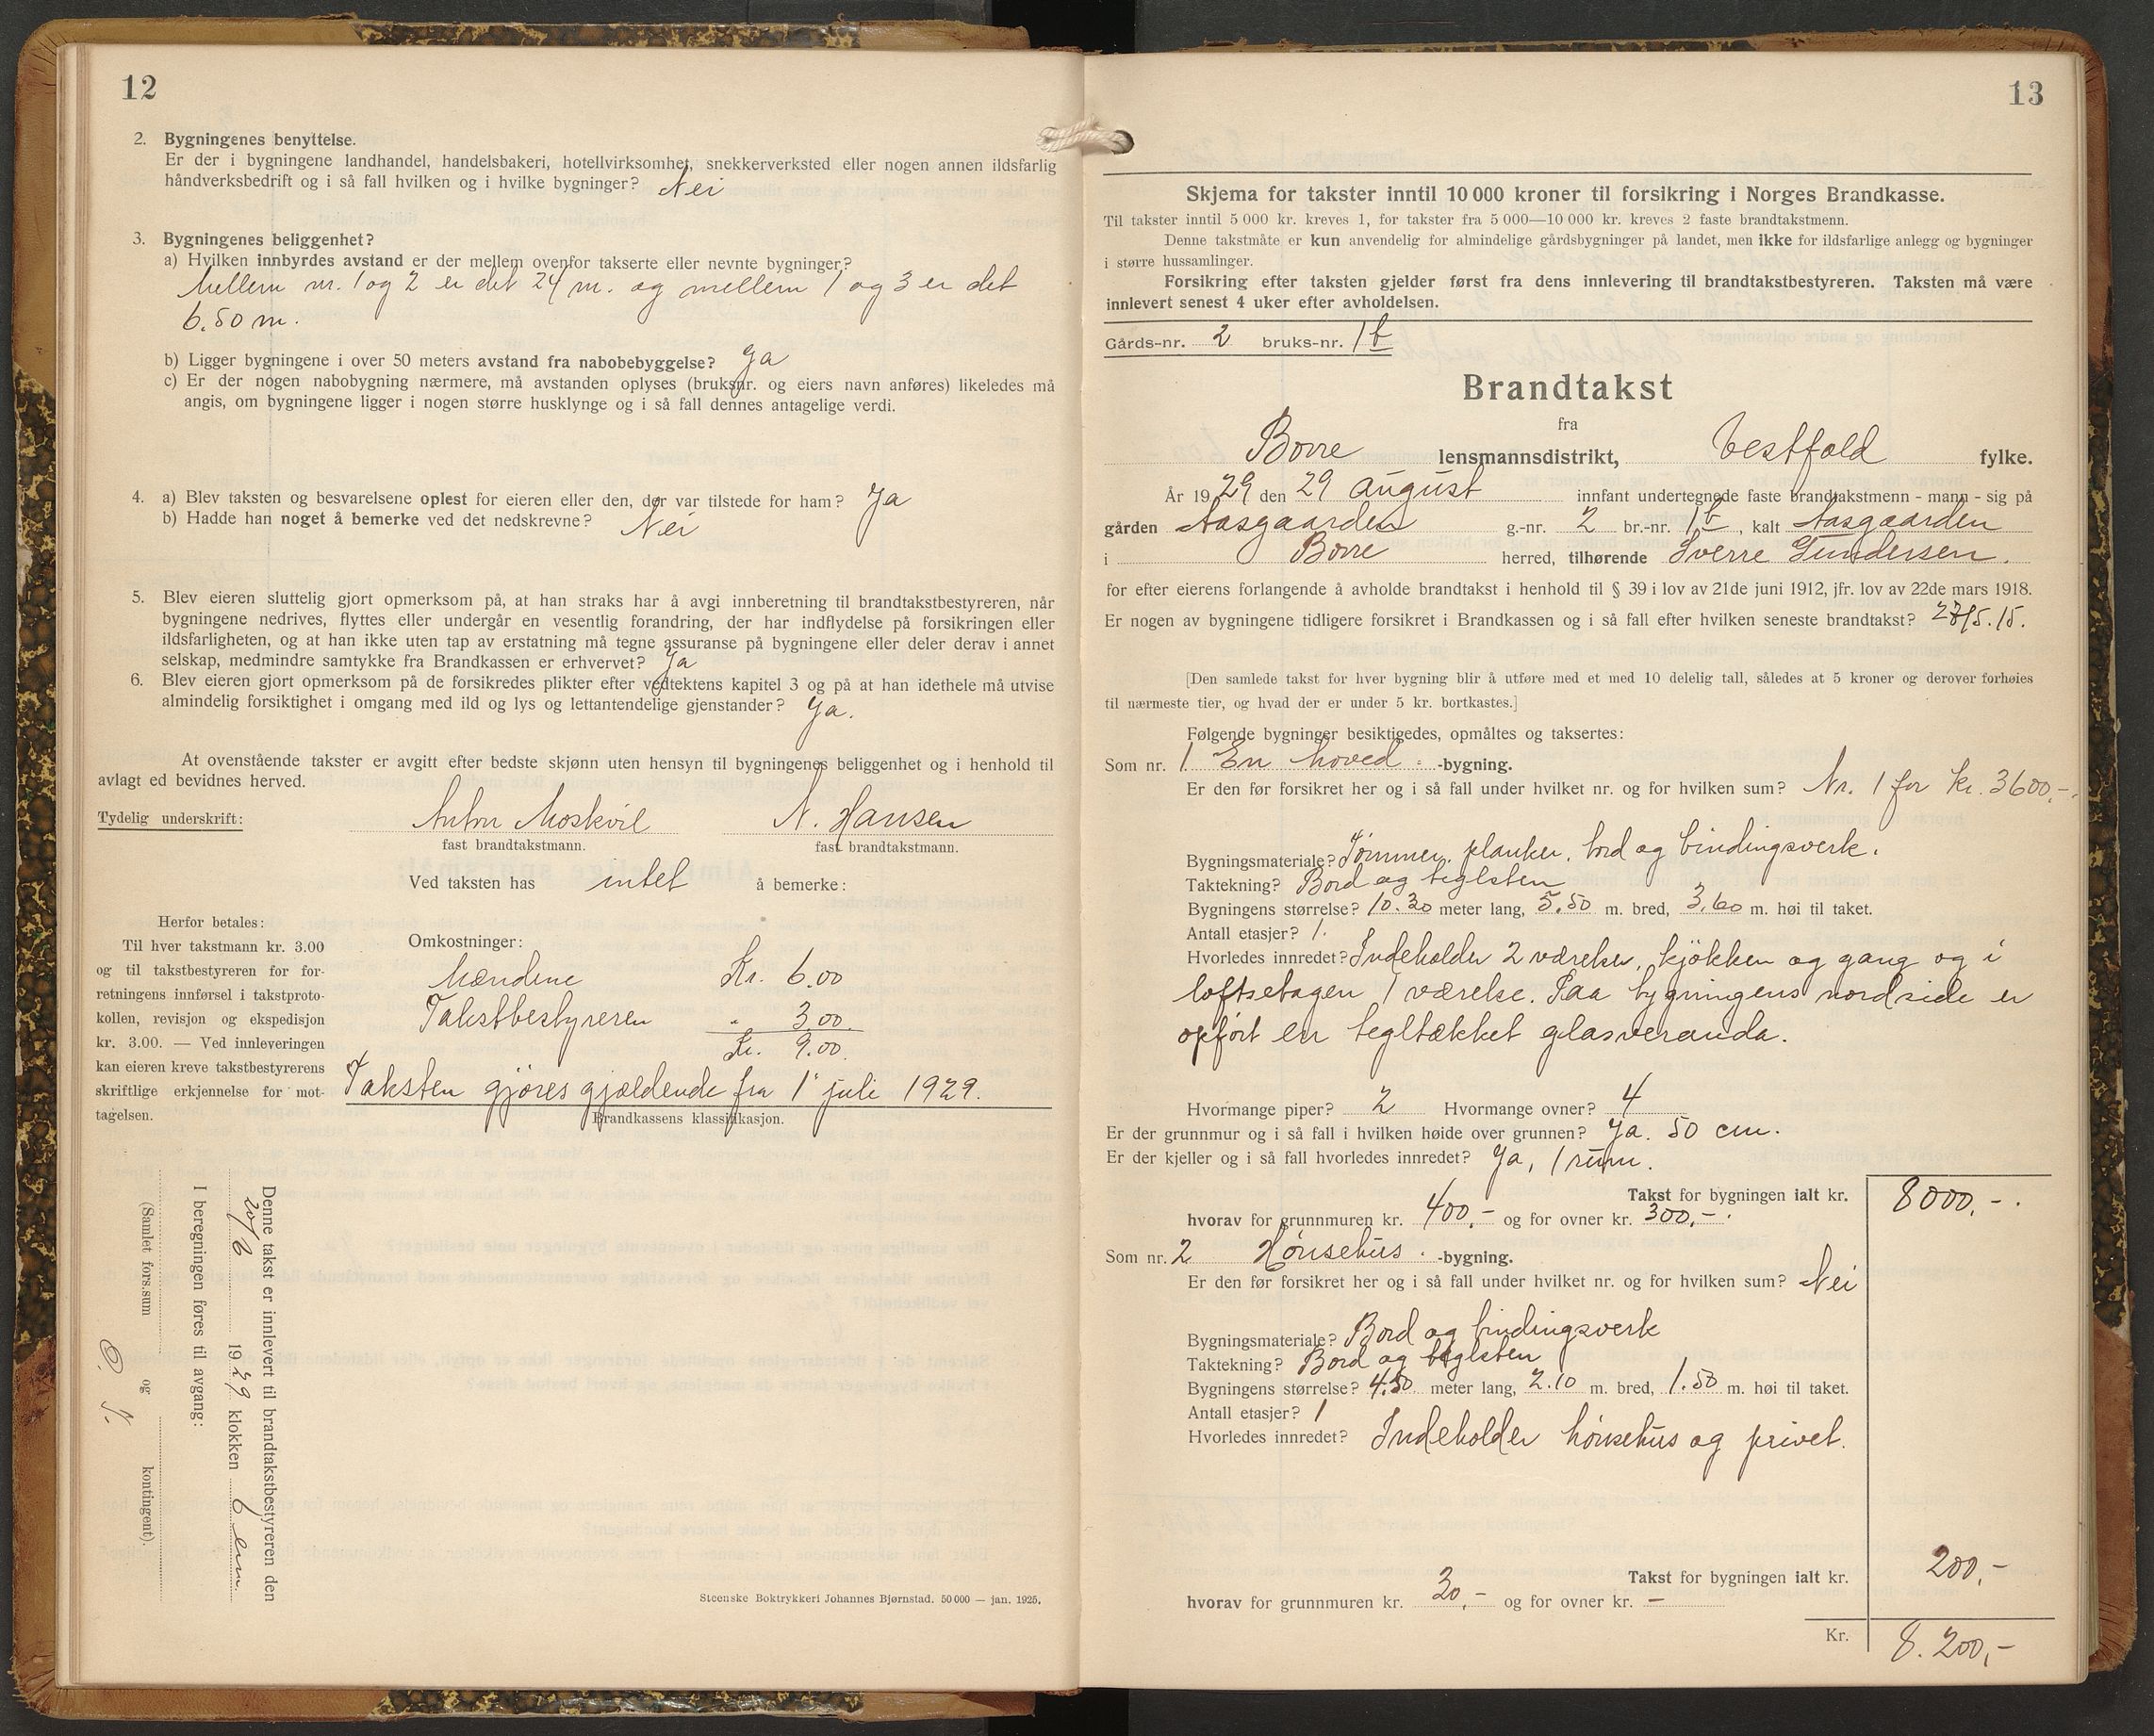 12
2. Bygningenes benyttelse.
Er der i bygningene landhandel, handelsbakeri, hotellvirksomhet, snekkerverksted eller nogen annen ildsfarlig
håndverksbedrift og i så fall hvilken og i hvilke bygninger? Nei
3. Bygningenes beliggenhet?
a) Hvilken innbyrdes avstand er der mellem ovenfor takserte eller nevnte bygninger?
Mellem nr. 1 og 2 er det 24 m. og mellem 1 og 3 er det
6.50 m.
b) Ligger bygningene i over 50 meters avstand fra nabobebyggelse? Ja
c) Er der nogen nabobygning nærmere, må avstanden oplyses (bruksnr. og eiers navn anføres) likeledes må
angis, om bygningene ligger i nogen større husklynge og i så fall dennes antagelige verdi.
4. a) Blev taksten og besvarelsene oplest for eieren eller den, der var tilstede for ham? Ja
b) Hadde han noget å bemerke ved det nedskrevne? Nei
5. Blev eieren sluttelig gjort opmerksom på, at han straks har å avgi innberetning til brandtakstbestyreren, når
bygningene nedrives, flyttes eller undergår en vesentlig forandring, der har indflydelse på forsikringen eller
ildsfarligheten, og at han ikke uten tap av erstatning må tegne assuranse på bygningene eller deler derav i annet
selskap, medmindre samtykke fra Brandkassen er erhvervet? Ja
6. Blev eieren gjort opmerksom på de forsikredes plikter efter vedtektens kapitel 3 og på at han idethele må utvise
almindelig forsiktighet i omgang med ild og lys og lettantendelige gjenstander? Ja.
At ovenstående takster er avgitt efter bedste skjønn uten hensyn til bygningenes beliggenhet og i henhold til
avlagt ed bevidnes herved.
Tydelig underskrift: Anton Moskvil N. Hansen
fast brandtakstmann. fast brandtakstmann.
Ved taksten has intet å bemerke:
Herfor betales:
Til hver takstmann kr. 3.00
og til takstbestyreren for for-
retningens innførsel i takstproto-
kollen, revisjon og ekspedisjon
kr. 3.00. — Ved innleveringen
kan eieren kreve takstbestyrerens
skriftlige erkjennelse for mot-
tagelsen.
Omkostninger:
Mændene Kr. 6.00
Takstbestyreren " 3.00.
Kr. 9.00.
Taksten gjøres gjældende fra 1 juli 1929.
Brandkassens klassifikasjon.
Denne takst er innlevert til brandtakstbestyreren den
1929 klokken 6 em.
I beregningen føres til avgang:
(Samlet fors.sum og kontingent).
Steenske Boktrykkeri Johannes Bjørnstad. 50 000 — jan. 1925.
13
Skjema for takster inntil 10 000 kroner til forsikring i Norges Brandkasse.
Til takster inntil 5 000 kr. kreves 1, for takster fra 5 000—10 000 kr. kreves 2 faste brandtakstmenn.
Denne takstmåte er kun anvendelig for almindelige gårdsbygninger på landet, men ikke for ildsfarlige anlegg og bygninger
i større hussamlinger.
Forsikring efter taksten gjelder først fra dens innlevering til brandtakstbestyreren. Taksten må være
innlevert senest 4 uker efter avholdelsen.
Gårds-nr. 2 bruks-nr. 1 b
Brandtakst
fra
Borre lensmannsdistrikt, Vestfold fylke.
År 1929 den 29 august innfant undertegnede faste brandtakstmenn - mann - sig på
gården Aasgaarden g.-nr. 2 br.-nr. 1 b, kalt Aasgaarden
i Borre herred, tilhørende Sverre Gundersen.
for efter eierens forlangende å avholde brandtakst i henhold til § 39 i lov av 21de juni 1912, jfr. lov av 22de mars 1918.
Er nogen av bygningene tidligere forsikret i Brandkassen og i så fall efter hvilken seneste brandtakst? 27/5.15.
[Den samlede takst for hver bygning blir å utføre med et med 10 delelig tall, således at 5 kroner og derover forhøies
til nærmeste tier, og hvad der er under 5 kr. bortkastes.]
Følgende bygninger besiktigedes, opmåltes og taksertes:
Som nr. 1 En hoved -bygning.
Er den før forsikret her og i så fall under hvilket nr. og for hvilken sum? Nr. 1 for kr. 3600,-.
Bygningsmateriale? Tømmer, planker, bord og bindingsverk.
Taktekning? Bord og teglsten
Bygningens størrelse? 10.30 meter lang, 5.50 m. bred, 3.60 m. høi til taket.
Antall etasjer? 1.
Hvorledes innredet? Indeholder 2 værelser, kjøkken og gang og i
loftsetagen 1 værelse. Paa bygningens nordside er
opført en tegltækket glasveranda.
Hvormange piper? 2 Hvormange ovner? 4
Er der grunnmur og i så fall i hvilken høide over grunnen? Ja. 50 cm.
Er der kjeller og i så fall hvorledes innredet? Ja, 1 rum.
Takst for bygningen ialt kr. 8000,-.
hvorav for grunnmuren kr. 400,- og for ovner kr. 300,-.
Som nr. 2 Hønsehus -bygning.
Er den før forsikret her og i så fall under hvilket nr. og for hvilken sum? Nei
Bygningsmateriale? Bord og bindingsverk
Taktekning? Bord og teglsten
Bygningens størrelse? 4.50 meter lang, 2.10 m. bred, 1.50 m. høi til taket.
Antall etasjer? 1
Hvorledes innredet? Indeholder hønsehus og privet.
Takst for bygningen ialt kr. 200,-
hvorav for grunnmuren kr. 30,- og for ovner kr. -
Kr. 8.200,-